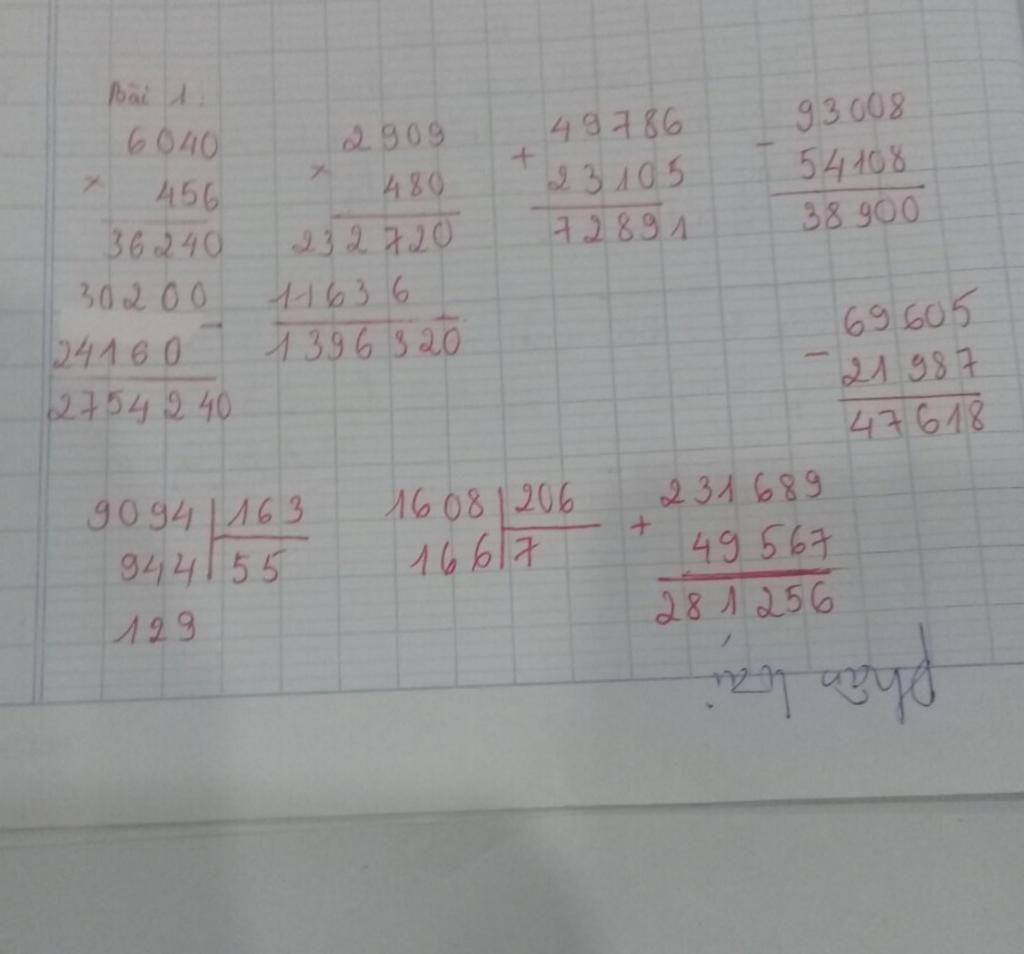 Bài 1:
6040
× 456
36240
30200
24160
2754240
2909
× 480
232720
11636
1396320
+ 49786
23105
72891
- 93008
54108
38900
- 69605
21987
47618
9094 | 163
944 | 55
129
1608 | 206
166 | 7
+ 231689
49567
281256
phân loại